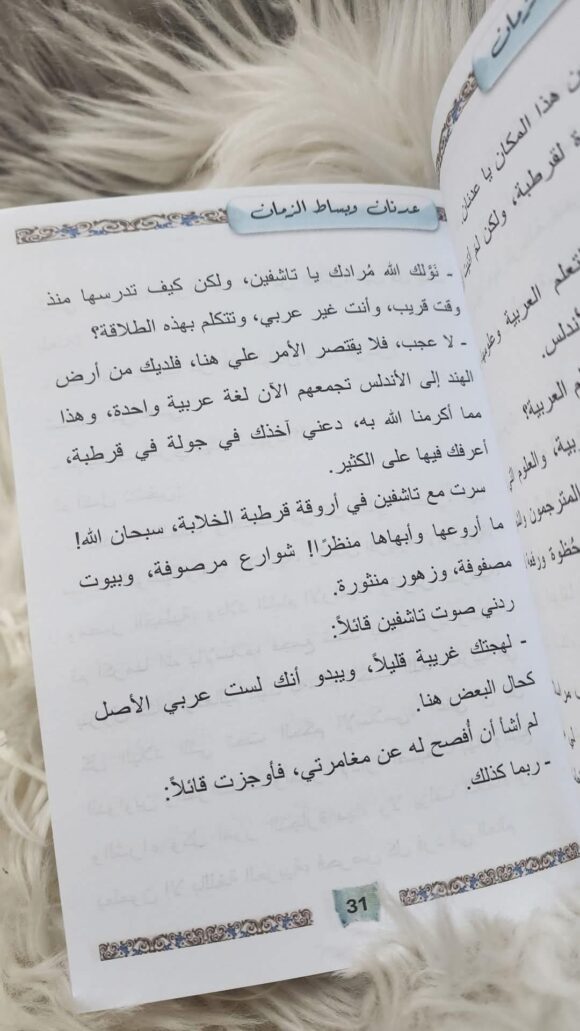 عدنان وبساط الزمان
- نَوَّلك الله مُرادك يا تاشفين، ولكن كيف تدرسها منذ
وقت قريب، وأنت غير عربي، وتتكلم بهذه الطلاقة؟
- لا عجب، فلا يقتصر الأمر علي هنا، فلديك من أرض
الهند إلى الأندلس تجمعهم الآن لغة عربية واحدة، وهذا
مما أكرمنا الله به، دعني آخذك في جولة في قرطبة،
أعرفك فيها على الكثير.
سرت مع تاشفين في أروقة قرطبة الخلابة، سبحان الله!
ما أروعها وأبهاها منظرًا! شوارع مرصوفة، وبيوت
مصفوفة، وزهور منثورة.
ردني صوت تاشفين قائلاً:
- لهجتك غريبة قليلاً، ويبدو أنك لست عربي الأصل
كحال البعض هنا.
لم أشأ أن أُفصح له عن مغامرتي، فأوجزت قائلاً:
- ربما كذلك.
31
الزمان
ن هذا المكان يا عدنان
ة لقرطبة، ولكن لم
تتعلم العربية
أندلس.
م العربية؟
بية، والعلوم
المترجمون
حُظوة